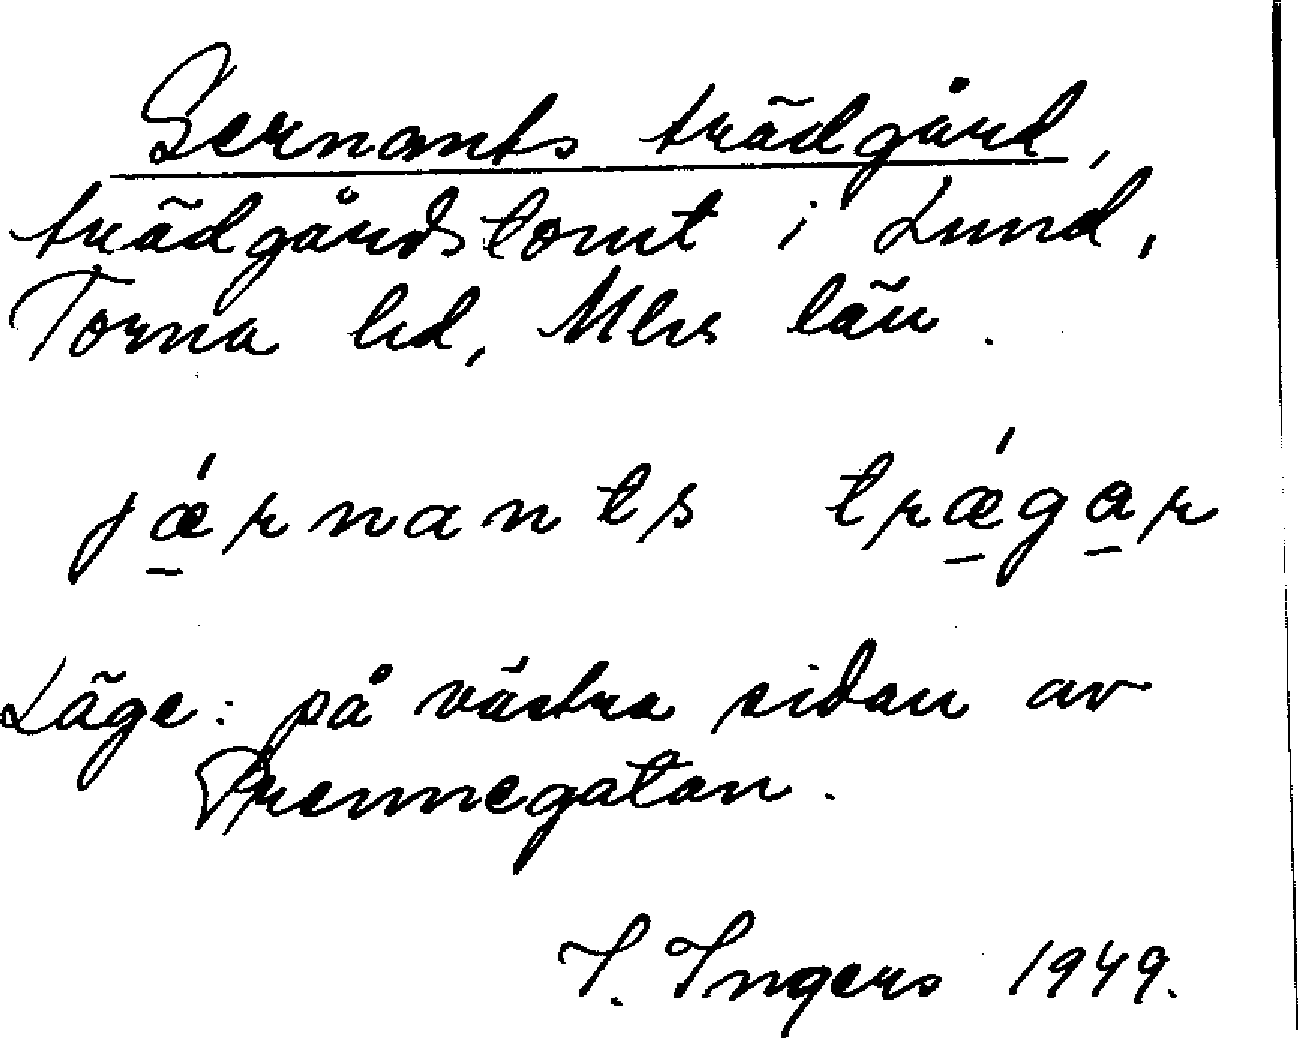 Gernants trädgård,
trädgårdstomt i Lund,
Torna hd, Mlhs län.
jǽrnants trǽgar
Läge: på västra sidan av
Prennegatan.
I. Ingers 1949.